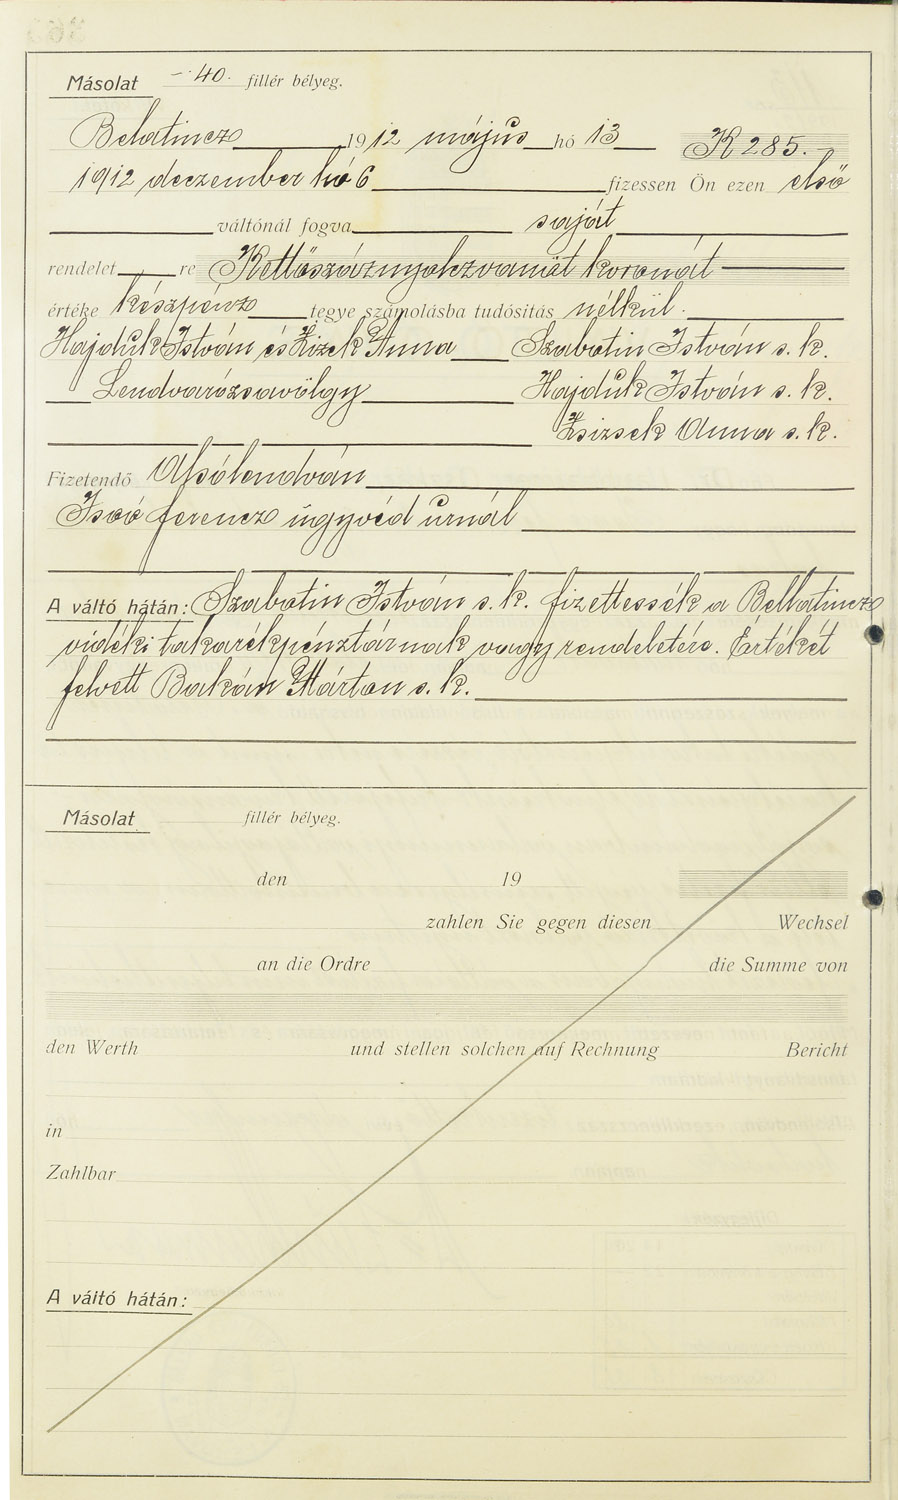 Másolat -·40· fillér bélyeg.
Belatincz 1912 május hó 13 K 285.-
1912 deczember hó 6 fizessen Ön ezen első
váltónál fogva saját
rendelet re Kettőszáznyolczvanöt koronát
értéke készpénz tegye számolásba tudósitás nélkül.
Hajduk István és Zizek Anna Szabotin István s. k.
Lendvarózsavölgy Hajduk István s. k.
Zsizsek Anna s. k.
Fizetendő Alsólendván
Isoó ferencz ügyvéd úrnál
A váltó hátán: Szabotin István s. k. fizettessék a Bellatincz
vidéki takarékpénztárnak vagy rendeletére. Értékét
felvett Bakán Márton s. k.
Másolat fillér bélyeg.
den 19
zahlen Sie gegen diesen Wechsel
an die Ordre die Summe von
den Werth und stellen solchen auf Rechnung Bericht
in
Zahlbar
A váltó hátán: